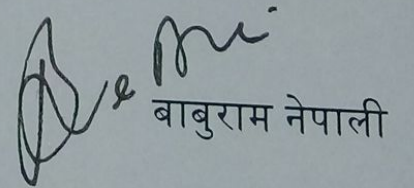 बाबुराम नेपाली